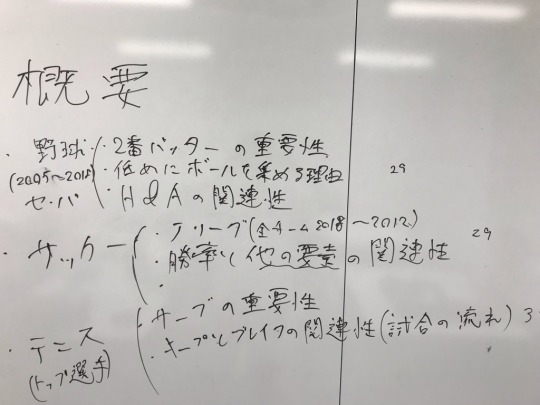 概要
・野球 ・2番バッターの重要性
(2005〜2018) ・低めにボールを集める理由 29
セ・パ ・H&Aの関連性
・サッカー ・Jリーグ(全チーム2018〜2012) 29
・勝率と他の要素の関連性
・
・サーブの重要性
・テニス ・キープとブレイクの関連性(試合の流れ) 3
(トップ選手)